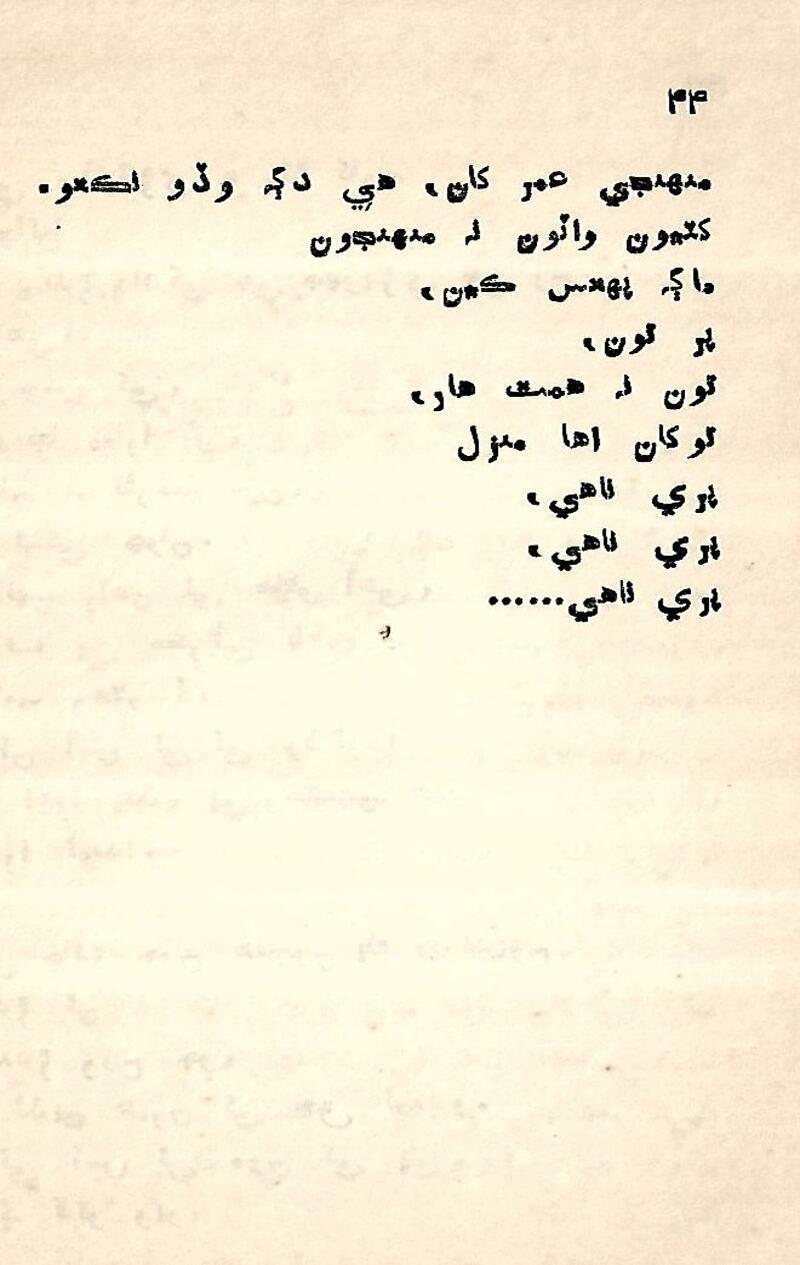 ۴۴
منهنجي عمر کان، هي دڳه وڏو نڪتو.
کٽيون واٽون نہ منهنجون
ماڳہ پهتس ڪين،
پر تون،
تون نہ همت هار،
توکان اها منزل
پري ناهي،
پري ناهي،
پري ناهي......